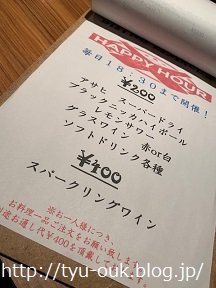 HAPPY HOUR
毎日18:30まで開催!
¥200
アサヒ スーパードライ
ブラックニッカハイボール
レモンサワー
グラスワイン 赤or白
ソフトドリンク各種
¥400
スパークリングワイン
※お一人様につき、
お料理一品ご注文をお願い致します。
別途お通し代¥400を頂戴して
http://tyu-ouk.blog.jp/